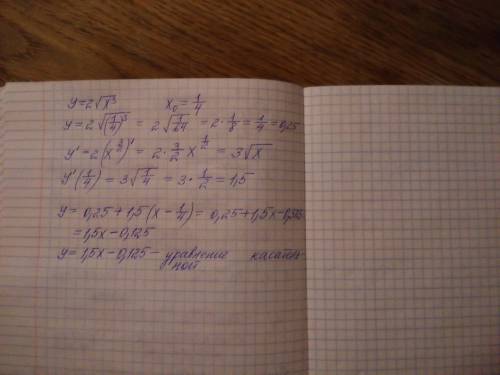 y=2√x³      x₀=1/4
y=2√(1/4)³ = 2√1/64 = 2·1/8 = 1/4 = 0,25
y'=2(x^(3/2))' = 2·3/2 x^(1/2) = 3√x
y'(1/4) = 3√1/4 = 3·1/2 = 1,5
y=0,25+1,5(x-1/4)= 0,25+1,5x-0,375
=1,5x-0,125
y=1,5x-0,125- уравнение касатель
ной